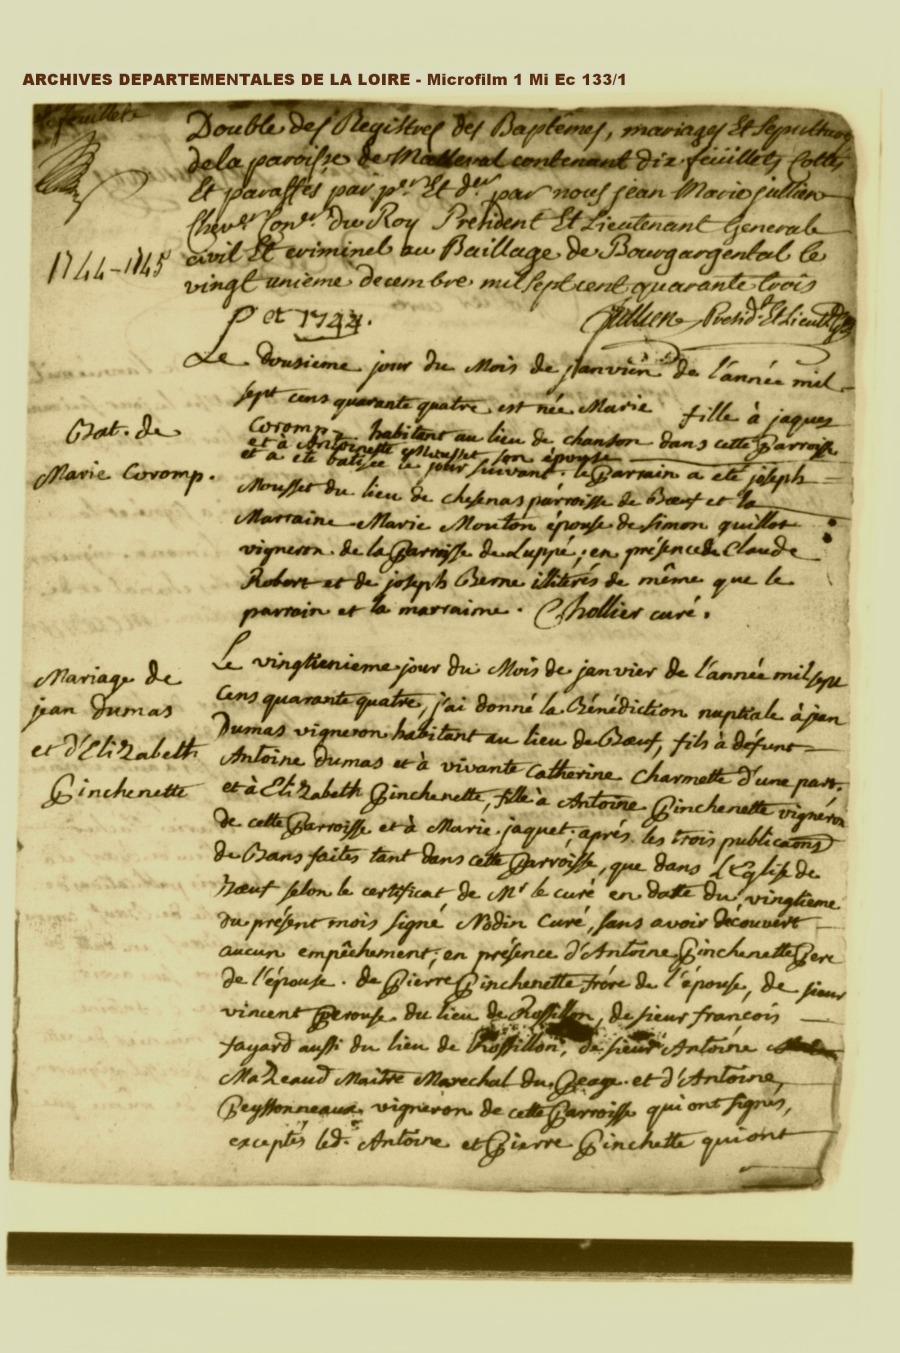 ARCHIVES DEPARTEMENTALES DE LA LOIRE - Microfilm 1 Mi Ec 133/1
feuillets
Double des Registres des Baptêmes, mariages Et Sepultures
de la paroisse de Malleval contenant dix feuillets Cottés
Et paraffés par p.er Et d.er par nous Jean Marie Jullien
Chev.er Con.er du Roy President Et Lieutenant General
1744-1745
civil Et criminel au Baillage de Bourgargental le
vingt unieme decembre mil sept cent quarante trois
p et 1744.
Jullien Presid.t Et Lieut.
Le dousieme jour du Mois de janvier de l'année mil
sept cens quarante quatre est née Marie fille à jaques
Bat. de
Marie Coromp.
Coromp habitant au lieu de chanson dans cette Parroisse
et à Antoinette Mousset son épouse
et a été batisée le jour suivant. le Parrain a eté joseph
Mousset du lieu de chesenas parroisse de Bœuf et la
Marraine Marie Mouton épouse de simon quillot
vigneron de la Parroisse de Luppé; en présence de Claude
Robert et de joseph Berne illiterés de même que le
parrain et la marraine. Chollier curé.
Mariage de
jean dumas
et d'Elizabeth
Pinchenette
Le vingtienieme jour du Mois de janvier de l'année mil sept
Cens quarante quatre, j'ai donné la Bénédiction nuptiale à jean
Dumas vigneron habitant au lieu de Bœuf, fils à défunt
Antoine dumas et à vivante Catherine Charmette d'une part.
et à Elizabeth Pinchenette, fille à Antoine Pinchenette vignéron
de cette Parroisse et à Marie jaquet. aprés les trois publicaons
de Bans faites tant dans cette Parroisse, que dans L'Eglise de
Bœuf selon le certificat de M.r le curé en datte du vingtieme
du présent mois signé Nodin Curé, sans avoir découvert
aucun empêchement; en présence d'Antoine Pinchenette Pere
de l'épouse. de Pierre Pinchenette frére de l'épouse, de sieur
vincent Perouse du lieu de Rossillon, de sieur françois
fayard aussi du lieu de Rossillon, de sieur Antoine
Mazeaud Maitre Marechal du Peage. et d'Antoine
Peyssonneaux vigneron de cette Parroisse qui ont signés,
exceptés led.s Antoine et Pierre Pinchette qui ont